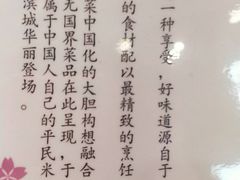 一种享受,好味道源自于
的食材配以最精致的烹饪
菜中国化的大胆构想融合
无国界菜品在此呈现,于
属于中国人自己的平民米
滨城华丽登场。